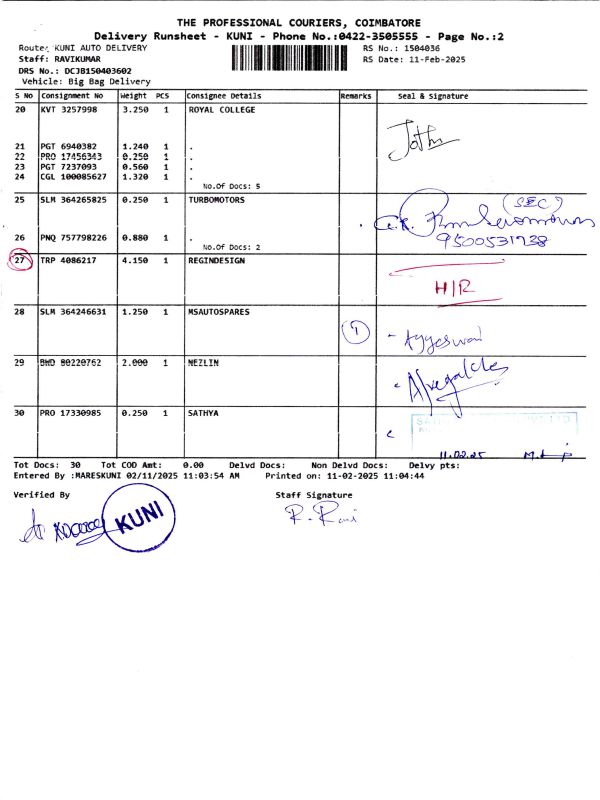 THE PROFESSIONAL COURIERS, COIMBATORE
Delivery Runsheet - KUNI - Phone No.:0422-3505555 - Page No.:2
Route: KUNI AUTO DELIVERY RS No.: 1504036
Staff: RAVIKUMAR RS Date: 11-Feb-2025
DRS No.: DCJB150403602
Vehicle: Big Bag Delivery
S No Consignment No Weight PCS Consignee Details Remarks Seal & Signature
20 KVT 3257998 3.250 1 ROYAL COLLEGE
21 PGT 6940382 1.240 1 .
22 PRO 17456343 0.250 1 .
23 PGT 7237093 0.560 1 .
24 CGL 100085627 1.320 1 .
No.Of Docs: 5
25 SLM 364265825 0.250 1 TURBOMOTORS (SEC)
26 PNQ 757798226 0.880 1 . 9500531738
No.Of Docs: 2
27 TRP 4086217 4.150 1 REGINDESIGN H/R
28 SLM 364246631 1.250 1 MSAUTOSPARES
29 BWD 80220762 2.000 1 NEZLIN
30 PRO 17330985 0.250 1 SATHYA
11.02.25
Tot Docs: 30 Tot COD Amt: 0.00 Delvd Docs: Non Delvd Docs: Delvy pts:
Entered By :MARESKUNI 02/11/2025 11:03:54 AM Printed on: 11-02-2025 11:04:44
Verified By Staff Signature
KUNI R. Ravi